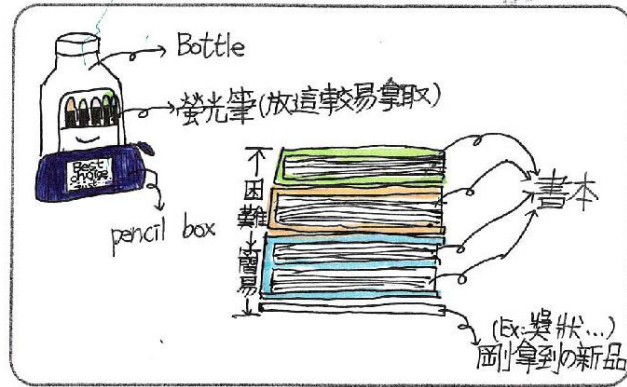 Bottle
螢光筆(放這較易拿取)
Best
choice
pencil box
困難
簡易
書本
(Ex:獎狀...)
剛拿到の新品